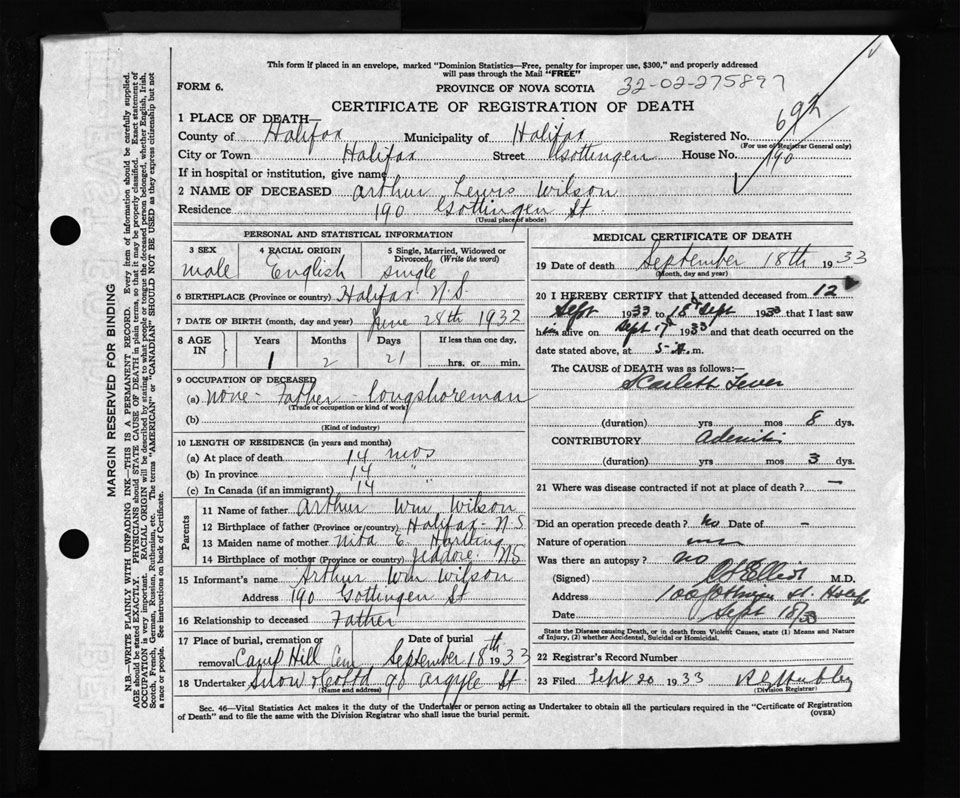 This form if placed in an envelope, marked "Dominion Statistics—Free, penalty for improper use, $300," and properly addressed
will pass through the Mail "FREE"
FORM 6.
PROVINCE OF NOVA SCOTIA 32-02-275897
CERTIFICATE OF REGISTRATION OF DEATH
1 PLACE OF DEATH—
County of Halifax Municipality of Halifax Registered No.
(For use of Registrar General only)
City or Town Halifax Street Gottingen House No. 190
If in hospital or institution, give name
2 NAME OF DECEASED Arthur Lewis Wilson
Residence 190 Gottingen St.
(Usual place of abode)
PERSONAL AND STATISTICAL INFORMATION
3 SEX 4 RACIAL ORIGIN 5 Single, Married, Widowed or
Divorced (Write the word)
male English single
6 BIRTHPLACE (Province or country) Halifax N.S.
7 DATE OF BIRTH (month, day and year) June 28th 1932
8 AGE IN Years Months Days If less than one day,
1 2 21 hrs. or min.
9 OCCUPATION OF DECEASED
(a) none - Father - longshoreman
(Trade or occupation or kind of work)
(b)
(Kind of industry)
10 LENGTH OF RESIDENCE (in years and months)
(a) At place of death 14 mos
(b) In province 14 "
(c) In Canada (if an immigrant) 14 "
Parents
11 Name of father Arthur Wm Wilson
12 Birthplace of father (Province or country) Halifax - N.S
13 Maiden name of mother Nita E. Hartling
14 Birthplace of mother (Province or country) Jeddore. N.S
15 Informant's name Arthur Wm Wilson
Address 190 Gottingen St
16 Relationship to deceased Father
17 Place of burial, cremation or Date of burial
removal Camp Hill Cem September 18th 1933
18 Undertaker Snow & Co Ltd 90 Argyle St.
(Name and address)
MEDICAL CERTIFICATE OF DEATH
19 Date of death September 18th 1933
(Month, day and year)
20 I HEREBY CERTIFY that I attended deceased from 12
Sept 1933 to 18th Sept 1933 that I last saw
him alive on Sept 17th 1933 and that death occurred on
date stated above, at 5- m.
The CAUSE of DEATH was as follows:—
Scarlett Fever
(duration) yrs mos 8 dys.
CONTRIBUTORY Adenitis
(duration) yrs mos 3 dys.
21 Where was disease contracted if not at place of death? —
Did an operation precede death? no Date of -
Nature of operation
Was there an autopsy? no
(Signed) M.D.
Address 100 Gottingen St. Halifax
Date Sept 18/33
State the Disease causing Death, or in death from Violent Causes, state (1) Means and Nature
of Injury, (2) whether Accidental, Suicidal or Homicidal.
22 Registrar's Record Number
23 Filed Sept 20 1933
(Division Registrar)
Sec. 46—Vital Statistics Act makes it the duty of the Undertaker or person acting as Undertaker to obtain all the particulars required in the "Certificate of Registration
of Death" and to file the same with the Division Registrar who shall issue the burial permit. (OVER)
MARGIN RESERVED FOR BINDING
N.B.—WRITE PLAINLY WITH UNFADING INK—THIS IS A PERMANENT RECORD. Every item of information should be carefully supplied.
AGE should be stated EXACTLY. PHYSICIANS should STATE CAUSE OF DEATH in plain terms, so that it may be properly classified. Exact statement of
OCCUPATION is very important. RACIAL ORIGIN will be described by stating to what people or tongue the deceased person belonged, whether English, Irish,
Scotch, French, German, Russian, Ruthenian, etc. The terms "AMERICAN" or "CANADIAN" SHOULD NOT BE USED as they express citizenship but not
a race or people. See instructions on back of Certificate.